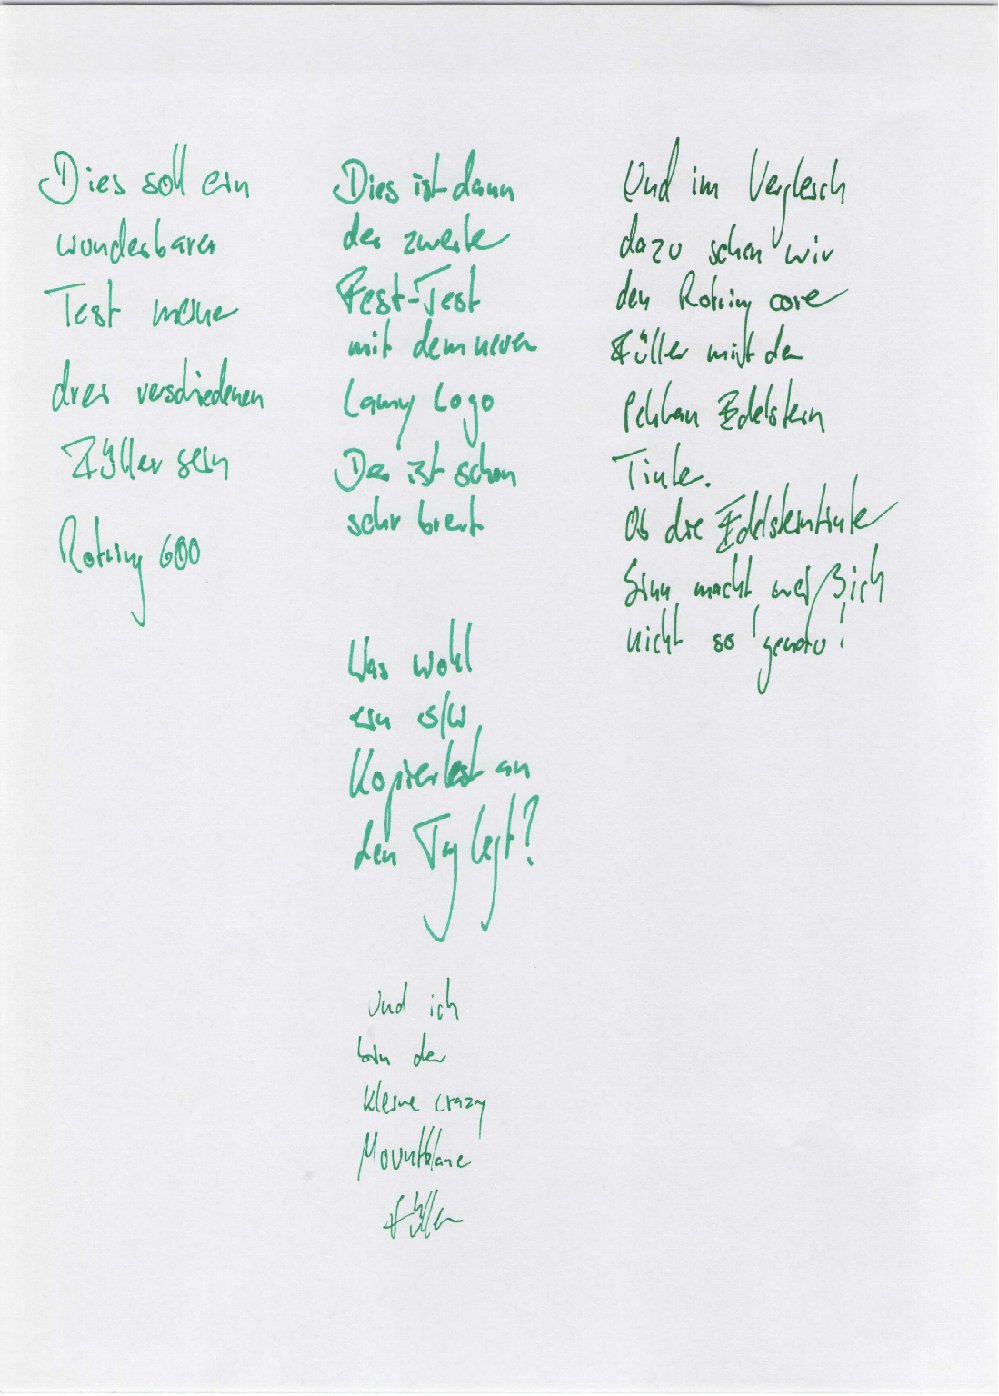 Dies soll ein
wunderbarer
Test meine
drei verschiedenen
Füller sein
Rotring 600
Dies ist dann
der zweite
Fest-Test
mit dem neuen
Lamy Logo
Der ist schon
sehr breit
Was wohl
ein s/w
Kopiertest an
den Tag legt?
Und ich
bin der
kleine crazy
Mountblanc
Füller
Und im Vergleich
dazu sehen wir
den Rotring core
Füller mit der
Pelikan Edelstein
Tinte.
Ob die Edelsteintinte
Sinn macht weiß ich
nicht so genau!